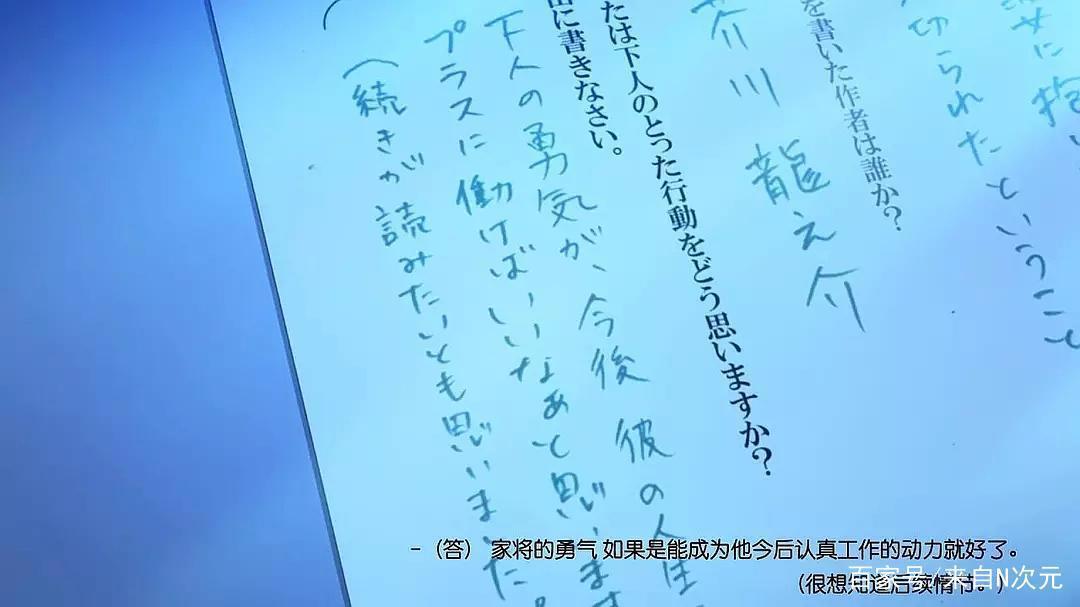 に抱い
切られたということ
を書いた作者は誰か?
芥川龍之介
たは下人のとった行動をどう思いますか?
由に書きなさい。
下人の勇気が、今後彼の人生
プラスに働けばいいなあと思います
(続きが読みたいとも思いました。
-(答) 家将的勇气 如果是能成为他今后认真工作的动力就好了。
(很想知道后续情节。)
百家号/来自N次元